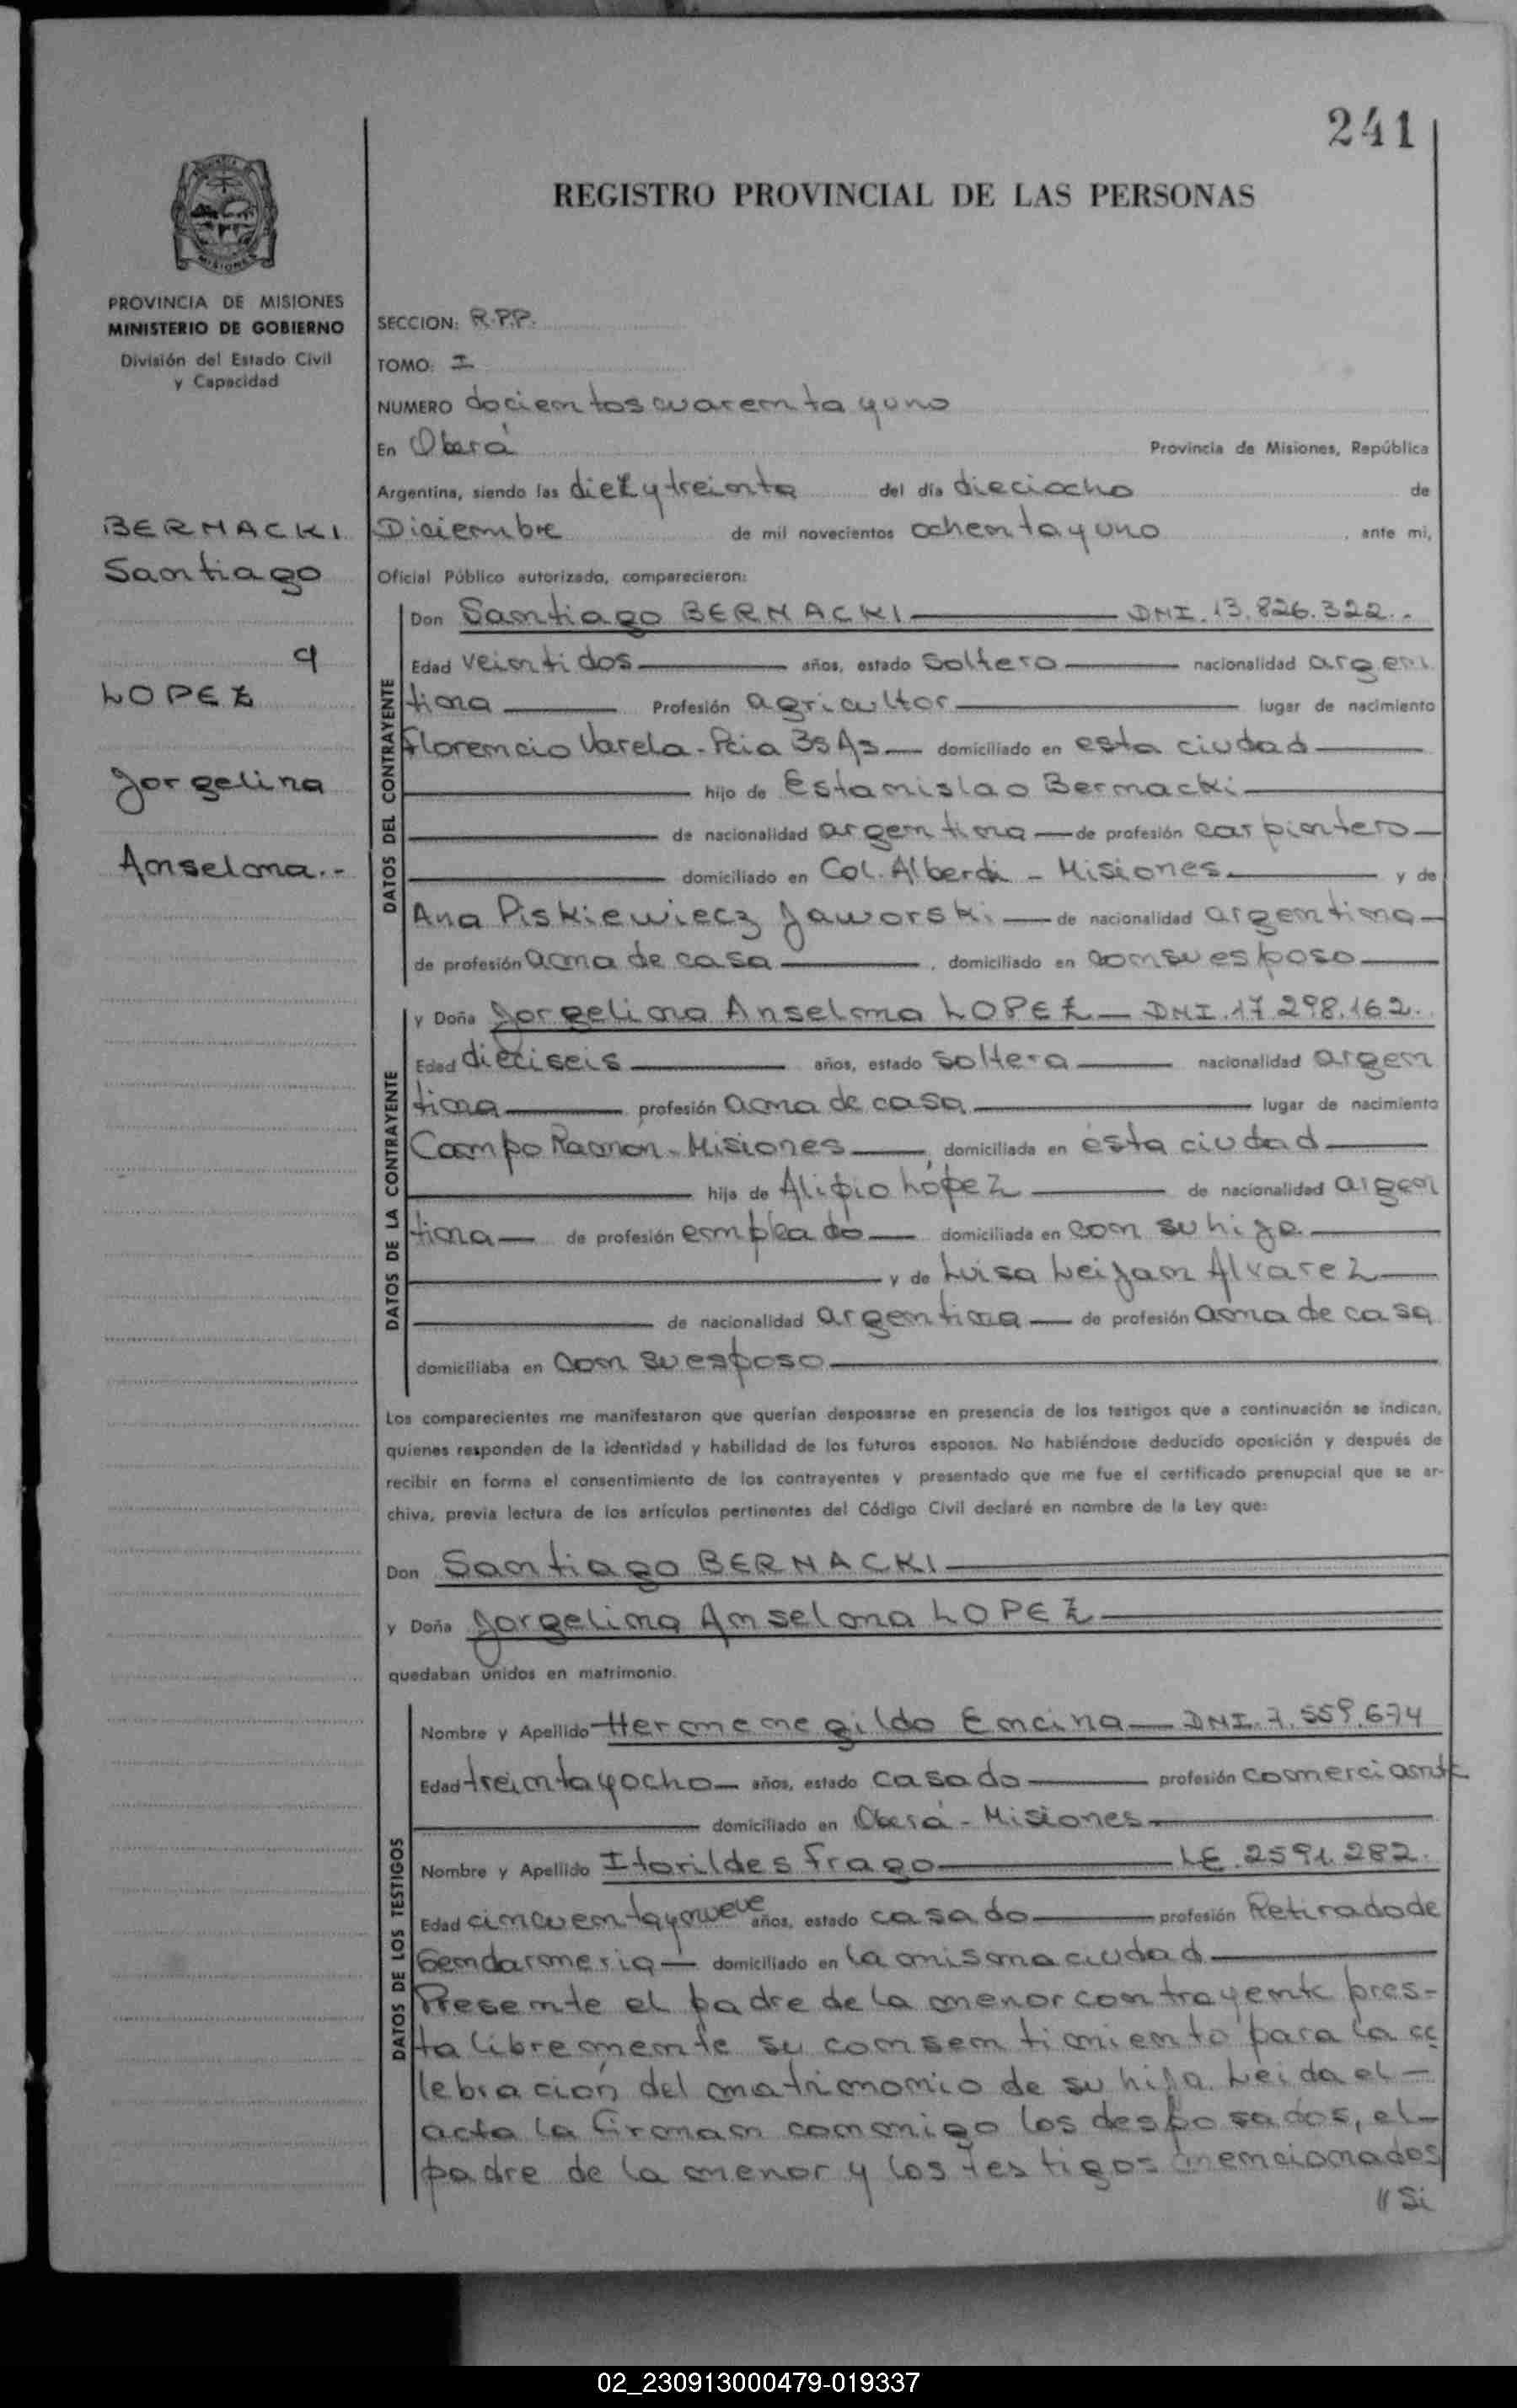 241
REGISTRO PROVINCIAL DE LAS PERSONAS
MISIONES
PROVINCIA DE MISIONES
MINISTERIO DE GOBIERNO
División del Estado Civil
y Capacidad
BERNACKI
Santiago
y
LOPEZ
Jorgelina
Anselma.-
SECCION: R.P.P.
TOMO: I
NUMERO docientos cuarenta y uno
En Oberá Provincia de Misiones, República
Argentina, siendo las diez y treinta del día dieciocho de
Diciembre de mil novecientos ochenta y uno, ante mi,
Oficial Público autorizado, comparecieron:
DATOS DEL CONTRAYENTE
Don Santiago BERNACKI DNI. 13.826.322.-
Edad veintidos años, estado soltero nacionalidad argen
tina Profesión agricultor lugar de nacimiento
Florencio Varela-Pcia Bs As domiciliado en esta ciudad
hijo de Estanislao Bernacki
de nacionalidad argentina de profesión carpintero
domiciliado en Col. Alberdi - Misiones y de
Ana Piskiewiecz Jaworski de nacionalidad argentina
de profesión ama de casa, domiciliado en con su esposo
DATOS DE LA CONTRAYENTE
y Doña Jorgelina Anselma LOPEZ DNI. 17 298.162.
Edad dieciseis años, estado soltera nacionalidad argen
tina profesión ama de casa lugar de nacimiento
Campo Ramón-Misiones, domiciliada en ésta ciudad
hija de Alipio López de nacionalidad argen
tina de profesión empleado domiciliada en con su hija
y de Luisa Leijan Alvarez
de nacionalidad argentina de profesión ama de casa
domiciliaba en con su esposo
Los comparecientes me manifestaron que querían desposarse en presencia de los testigos que a continuación se indican,
quienes responden de la identidad y habilidad de los futuros esposos. No habiéndose deducido oposición y después de
recibir en forma el consentimiento de los contrayentes y presentado que me fue el certificado prenupcial que se ar-
chiva, previa lectura de los artículos pertinentes del Código Civil declaré en nombre de la Ley que:
Don Santiago BERNACKI
y Doña Jorgelina Anselma LOPEZ
quedaban unidos en matrimonio.
DATOS DE LOS TESTIGOS
Nombre y Apellido Hermenegildo Encina DNI. 7.559.674
Edad treinta y ocho años, estado casado profesión comerciante
domiciliado en Oberá - Misiones
Nombre y Apellido Itorildes Frago LE. 2591.282.
Edad cincuenta y nueve años, estado casado profesión Retirado de
Gendarmeria domiciliado en la misma ciudad
Presente el padre de la menor contrayente pres-
ta libremente su consentimiento para la ce
lebración del matrimonio de su hija. Leida el-
acta la firman conmigo los desposados, el-
padre de la menor y los testigos mencionados
// Si
02_230913000479-019337